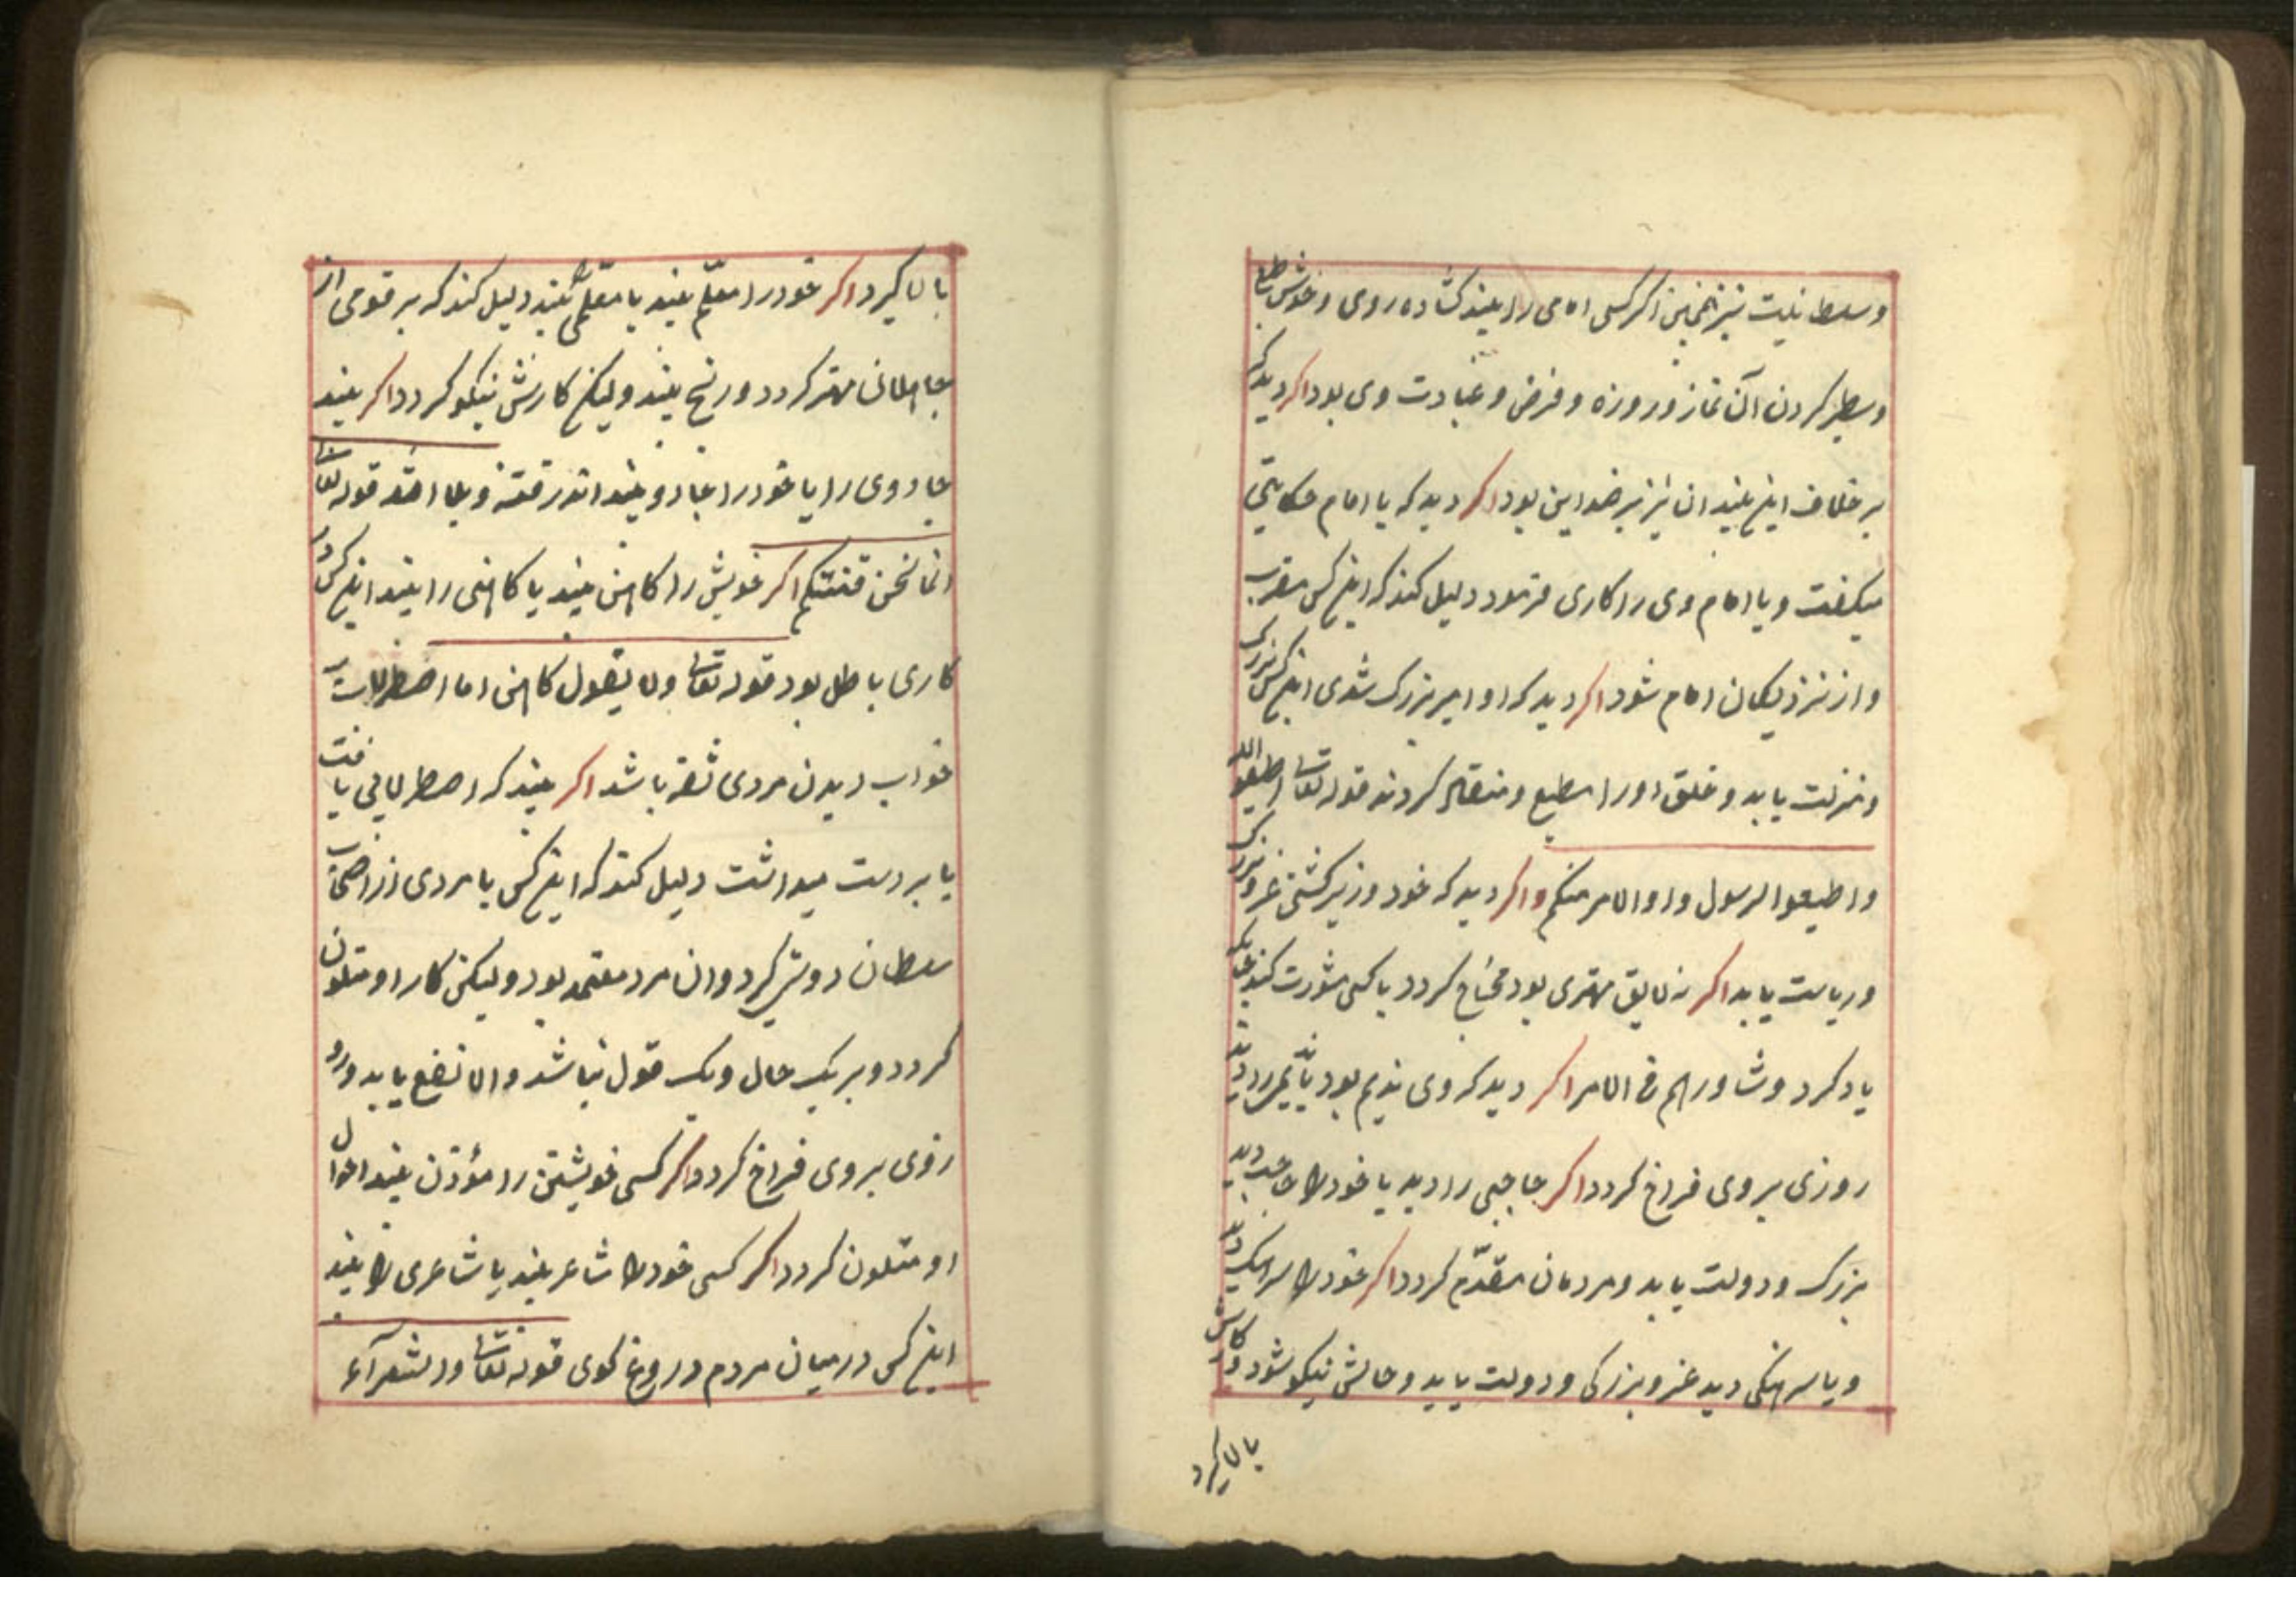 و سلطانیت نیز همچنین اگر کسی امامی را بیند گشاده روی و خوش طبع
و سطبر کردن آن نماز و روزه و فرض و عبادت وی بود اگر دید که
بر خلاف این بیند ان نیز بر ضد این بود اگر دید که با امام حکایتی
میکفت و یا امام وی را کاری فرمود دلیل کند که این کس مقرب
و از نزدیکان امام شود اگر دید که او امیر بزرک شدی این کس بزرکی
و منزلت یابد و خلق او را مطیع و منقاد کردند قوله تعالی اطیعوا الله
و اطیعوا الرسول و اوالامر منکم و اگر دید که خود وزیر کشتی عز و بزرکی
و ریاست یابد اگر نه لایق مهتری بود محتاج کردد با کسی مشورت کند
یاد کرد و شاورهم فی الامر اگر دید که وی ندیم بود
روزی بر وی فراخ کردد اگر حاجبی را دید یا خود را حاجب دید
بزرک و دولت یابد و مردمان مقدّم کردد اگر خود را سرهنک دید
و یا سرهنکی دید عز و بزرکی و دولت یابد و حالش نیکو شود و کارش
بالا کیرد
بالا کیرد اگر خود را معلّم بیند یا معلّمی را بیند دلیل کند که بر قومی از
جاهلان مهتر کردد و رنج بیند ولیکن کارش نیکو کردد اگر بیند
جادوی را یا خود را جادو بیند اندر فتنه و بلا افتد قوله تعالی
انما نحن فتنتکم اگر خویش را کاهن بیند یا کاهنی را بیند این کس در
کاری باطل بود قوله تعالی ولا بقول کاهن اما اصطرلاب
خواب دیدن مردی ثقه باشد اگر بیند که اصطرلابی یافت
یا بر دست میداشت دلیل کند که این کس با مردی از اصحاب
سلطان دوستی کیرد و ان مرد معتمد بود ولیکن کار او متلون
کردد و بر یک حال و یک قول نباشد و الا نفع یابد و رو
زوی بر وی فراخ کردد اگر کسی خویشتن را مؤذن بیند احوال
او متلون کردد اگر کسی خود را شاعر بیند یا شاعری را بیند
این کس در میان مردم دروغ کوی قوله تعالی والشعرآء